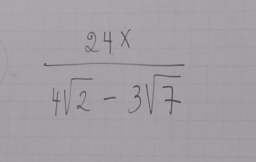 24x
4√2 - 3√7